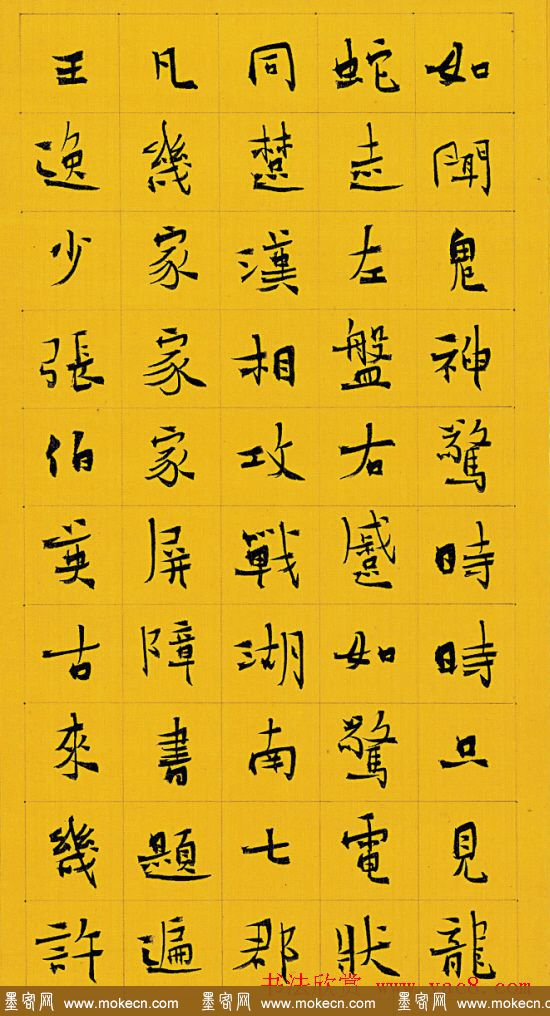 如聞鬼神驚時時只見龍
蛇走左盤右蹙如驚電狀
同楚漢相攻戰湖南七郡
凡幾家家家屏障書題遍
王逸少張伯英古來幾許
书法欣赏 www.yac8.com
墨客网 www.mokecn.com 墨客网 www.mokecn.com 墨客网 www.mokecn.com